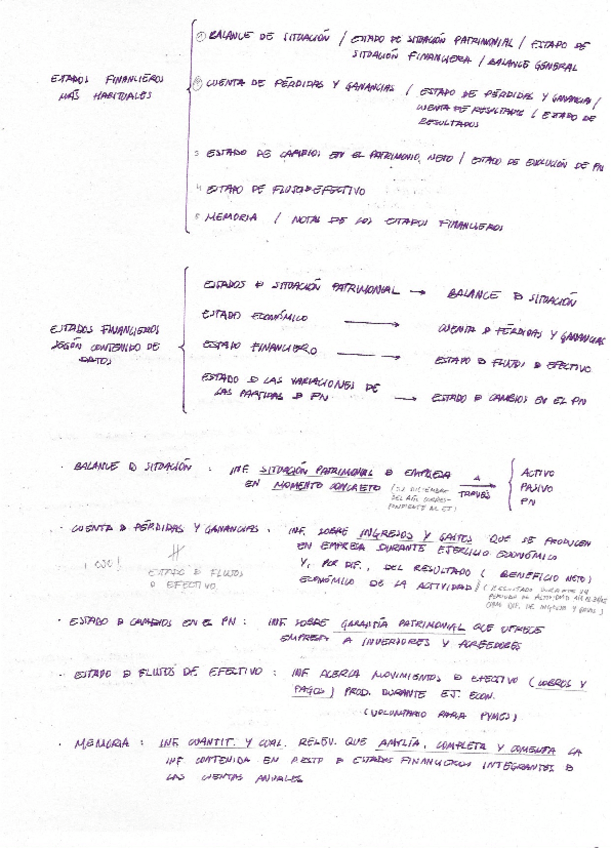 ESTADOS FINANCIEROS
MÁS HABITUALES
① BALANCE DE SITUACIÓN / ESTADO DE SITUACIÓN PATRIMONIAL / ESTADO DE
SITUACIÓN FINANCIERA / BALANCE GENERAL
② CUENTA DE PÉRDIDAS Y GANANCIAS / ESTADO DE PÉRDIDAS Y GANANCIAS /
CUENTA DE RESULTADOS / ESTADO DE
RESULTADOS
3 ESTADO DE CAMBIOS EN EL PATRIMONIO NETO / ESTADO DE EVOLUCIÓN DE PN
4 ESTADO DE FLUJO DE EFECTIVO
5 MEMORIA / NOTAS DE LOS ESTADOS FINANCIEROS
ESTADOS FINANCIEROS
SEGÚN CONTENIDO DE
DATOS
ESTADOS D SITUACIÓN PATRIMONIAL → BALANCE D SITUACIÓN
ESTADO ECONÓMICO → CUENTA D PÉRDIDAS Y GANANCIAS
ESTADO FINANCIERO → ESTADO D FLUJOS D EFECTIVO
ESTADO D LAS VARIACIONES DE
LAS PARTIDAS D PN → ESTADO D CAMBIOS EN EL PN
· BALANCE D SITUACIÓN : INF. SITUACIÓN PATRIMONIAL D EMPRESA
EN MOMENTO CONCRETO (31 DICIEMBRE
DEL AÑO CORRES-
PONDIENTE AL EJ.)
A
TRAVÉS
ACTIVO
PASIVO
PN
· CUENTA D PÉRDIDAS Y GANANCIAS : INF. SOBRE INGRESOS Y GASTOS QUE SE PRODUCEN
EN EMPRESA DURANTE EJERCICIO ECONÓMICO
Y, POR DIF., DEL RESULTADO ( BENEFICIO NETO)
ECONÓMICO DE LA ACTIVIDAD (RESULTADO DURANTE UN
COMO DIF. DE INGRESOS Y GASTOS)
¡OJO!
≠
ESTADO D FLUJOS
D EFECTIVO
· ESTADO D CAMBIOS EN EL PN : INF SOBRE GARANTÍA PATRIMONIAL QUE OFRECE
EMPRESA A INVERSORES Y ACREEDORES
· ESTADO D FLUJOS DE EFECTIVO : INF ACERCA MOVIMIENTOS D EFECTIVO (COBROS Y
PAGOS) PROD. DURANTE EJ. ECON.
(VOLUNTARIO PARA PYMES)
· MEMORIA : INF. CUANTIT. Y CUAL. RELEV. QUE AMPLÍA, COMPLETA Y COMENTA LA
INF. CONTENIDA EN RESTO D ESTADOS FINANCIEROS INTEGRANTES D
LAS CUENTAS ANUALES